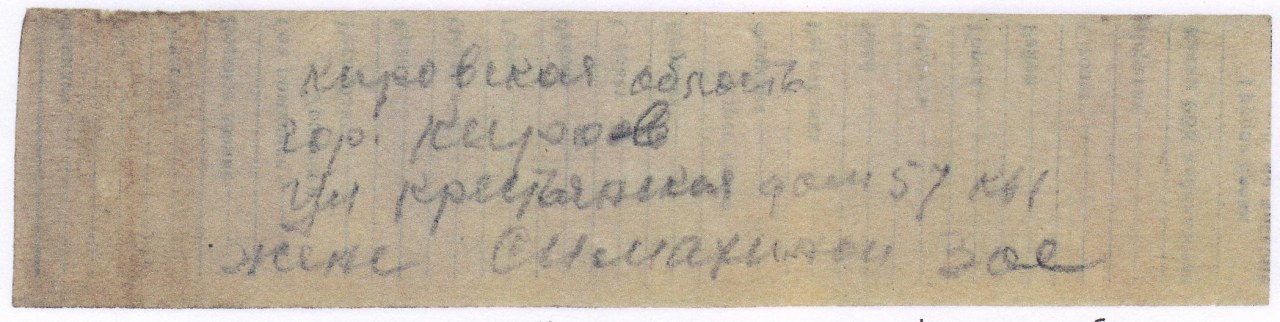 кировская область
гор. Киров
ул крестьянская дом 57 кв 1
жене Симахиной Зое